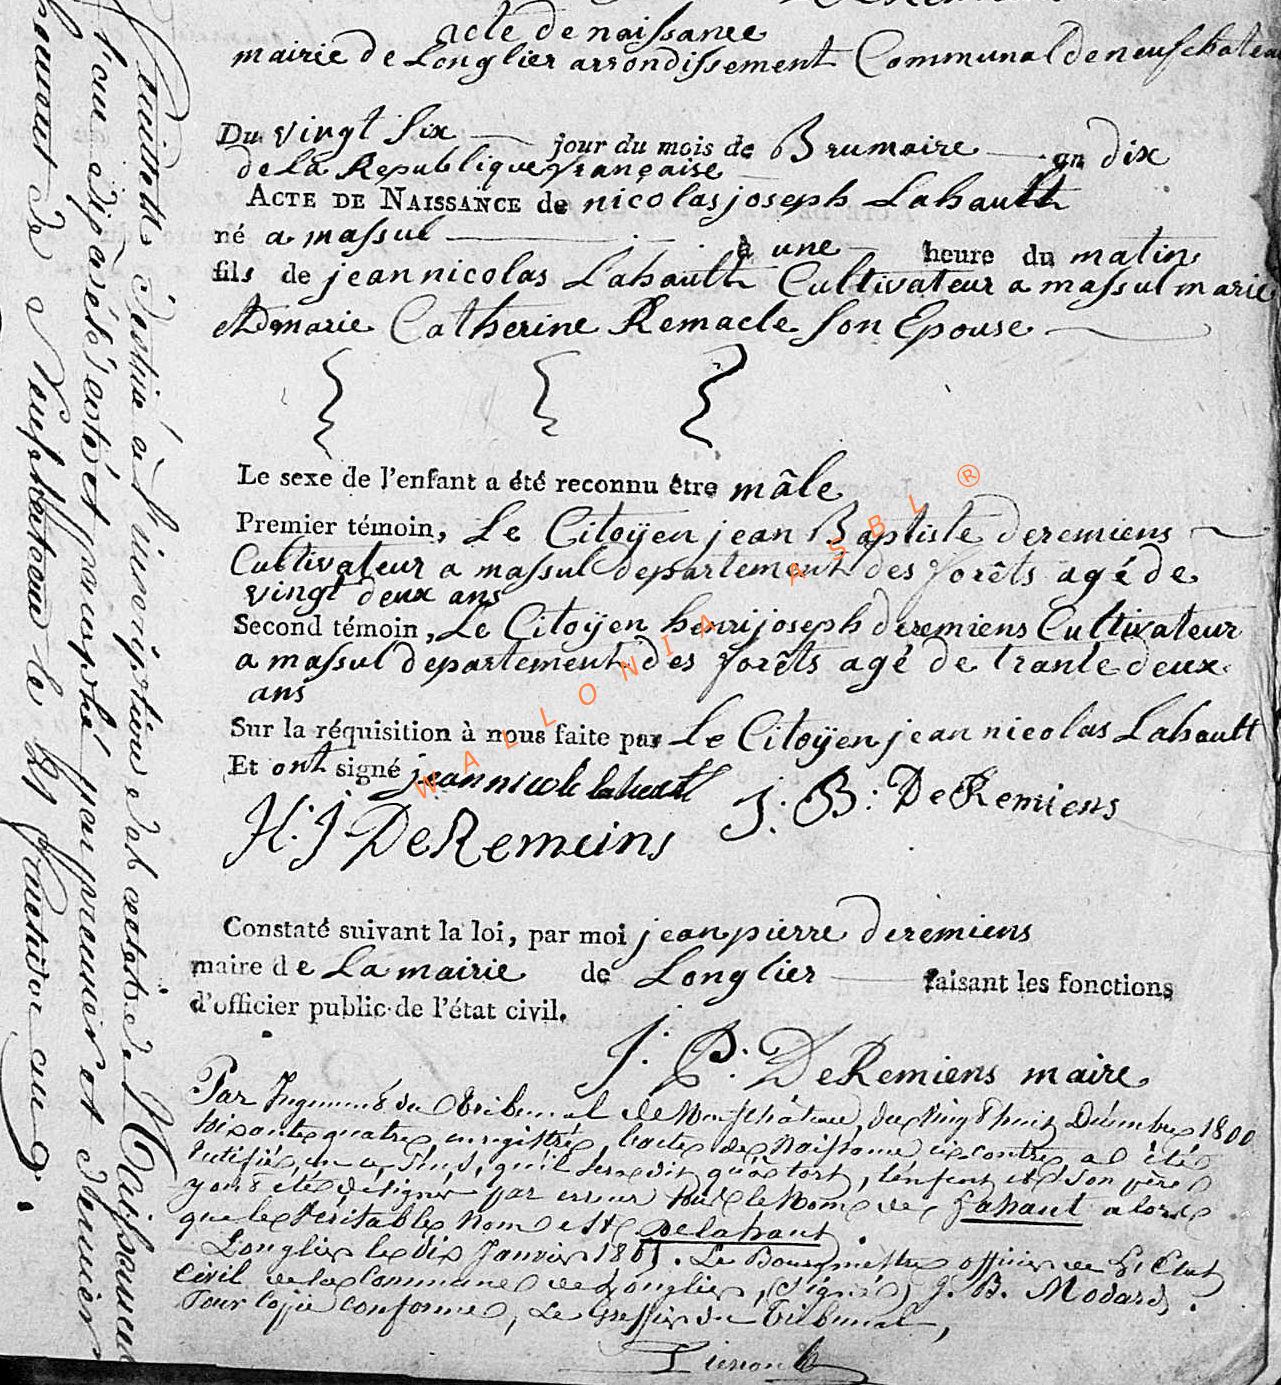 acte de naissance
mairie de Longlier arrondissement Communal de neufchateau
Du vingt Six jour du mois de Brumaire an dix
de La Republique française
ACTE DE NAISSANCE de nicolas joseph Lahault
né a massul à une heure du matin
fils de jean nicolas Lahault Cultivateur a massul marie
et de marie Catherine Remacle son Epouse
Le sexe de l'enfant a été reconnu être mâle
Premier témoin, Le Citoÿen jean Baptiste deremiens
Cultivateur a massul departement des forêts agé de
vingt deux ans
Second témoin, Le Citoÿen henri joseph deremiens Cultivateur
a massul departement des forêts agé de trante deux
ans
Sur la réquisition à nous faite par Le Citoÿen jean nicolas Lahault
Et ont signé jean nicole lahault
J. B: DeRemiens
H. J. DeRemeins
Constaté suivant la loi, par moi jean pierre deremiens
maire de La mairie de Longlier faisant les fonctions
d'officier public de l'état civil.
J. P. DeRemiens maire
Par Jugement du Tribunal de Neufchâteau, du vingt huit Décembre 1800
soixante quatre, enregistré, l'acte de Naissance ci contre a été
rectifié, en ce sens, qu'il sera dit qu'à tort, l'enfant et son père
y ont été désignés par erreur sous le Nom de Lahaut alors
que le véritable Nom est Delahaut.
Longlier le dix Janvier 1865. Le Bourgmestre officier de l'Etat
Civil de la Commune de Longlier, (signé) J. B. Modard.
Pour Copie conforme, Le Greffier du Tribunal,
l'inscription des actes de Naissances
l'an dix a été coté et paraphé par premier et dernier
de Neufchateau le 29 fructidor an 9.
WALLONIA ASBL ®